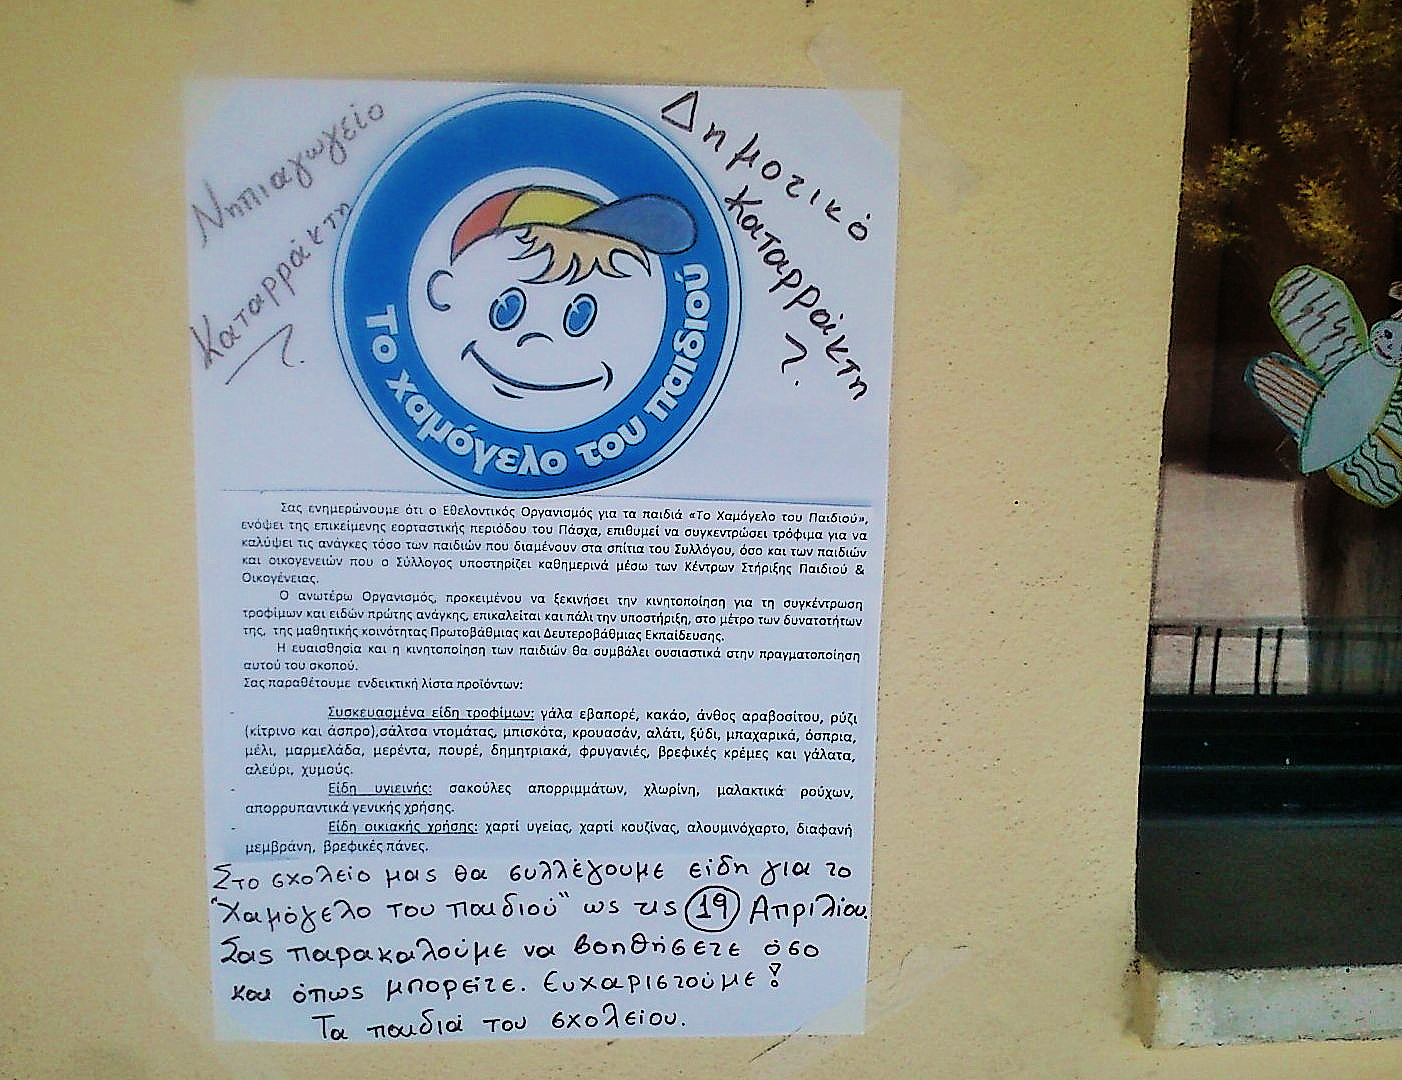 Νηπιαγωγείο
Καταρράκτη
Δημοτικό
Καταρράκτη
Το χαμόγελο του παιδιού
Σας ενημερώνουμε ότι ο Εθελοντικός Οργανισμός για τα παιδιά «Το Χαμόγελο του Παιδιού»,
ενόψει της επικείμενης εορταστικής περιόδου του Πάσχα, επιθυμεί να συγκεντρώσει τρόφιμα για να
καλύψει τις ανάγκες τόσο των παιδιών που διαμένουν στα σπίτια του Συλλόγου, όσο και των παιδιών
και οικογενειών που ο Σύλλογος υποστηρίζει καθημερινά μέσω των Κέντρων Στήριξης Παιδιού &
Οικογένειας.
Ο ανωτέρω Οργανισμός, προκειμένου να ξεκινήσει την κινητοποίηση για τη συγκέντρωση
τροφίμων και ειδών πρώτης ανάγκης, επικαλείται και πάλι την υποστήριξη, στο μέτρο των δυνατοτήτων
της, της μαθητικής κοινότητας Πρωτοβάθμιας και Δευτεροβάθμιας Εκπαίδευσης.
Η ευαισθησία και η κινητοποίηση των παιδιών θα συμβάλει ουσιαστικά στην πραγματοποίηση
αυτού του σκοπού.
Σας παραθέτουμε ενδεικτική λίστα προϊόντων:
- Συσκευασμένα είδη τροφίμων: γάλα εβαπορέ, κακάο, άνθος αραβοσίτου, ρύζι
(κίτρινο και άσπρο),σάλτσα ντομάτας, μπισκότα, κρουασάν, αλάτι, ξύδι, μπαχαρικά, όσπρια,
μέλι, μαρμελάδα, μερέντα, πουρέ, δημητριακά, φρυγανιές, βρεφικές κρέμες και γάλατα,
αλεύρι, χυμούς.
- Είδη υγιεινής: σακούλες απορριμμάτων, χλωρίνη, μαλακτικά ρούχων,
απορρυπαντικά γενικής χρήσης.
- Είδη οικιακής χρήσης: χαρτί υγείας, χαρτί κουζίνας, αλουμινόχαρτο, διαφανή
μεμβράνη, βρεφικές πάνες.
Στο σχολείο μας θα συλλέγουμε είδη για το
"Χαμόγελο του παιδιού" ως τις 19 Απριλίου.
Σας παρακαλούμε να βοηθήσετε όσο
και όπως μπορείτε. Ευχαριστούμε!
Τα παιδιά του σχολείου.